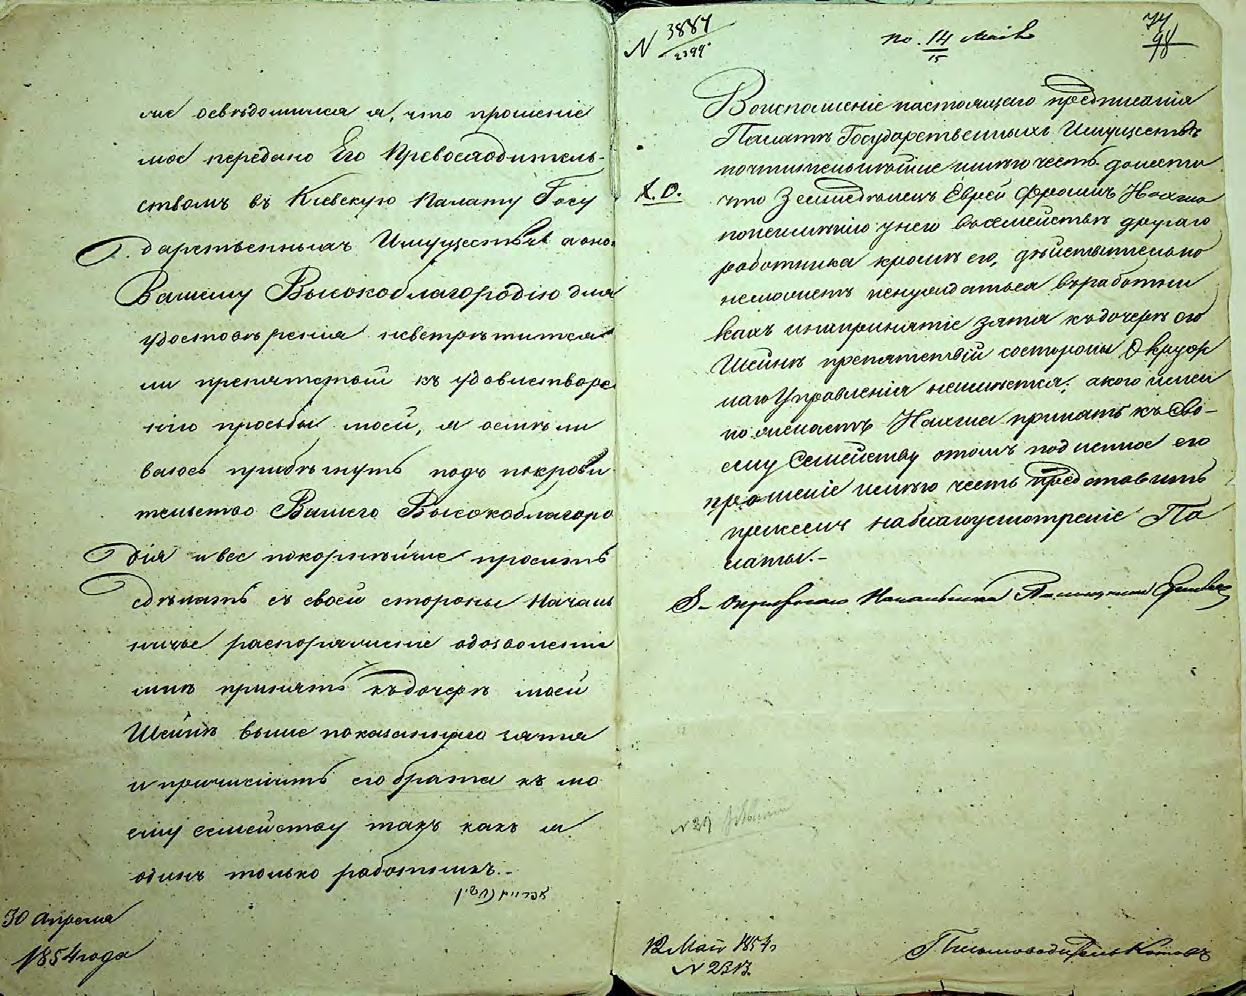 ле освѣдомился я, что прошеніе
мое передано Его Превосходитель-
ствомъ въ Кіевскую Палату Госу
дарственныхъ Имуществъ а оно
Вашему Высокоблагородію для
удостовѣренія невстрѣтится
ли препятствій къ удовлетворе
нію просьбы моей, я осмѣли
ваюсь прибѣгнуть подъ покрови
тельство Вашего Высокоблагоро
дія и все покорнѣйше просить
сдѣлать съ своей стороны Началь
ничье распоряженіе одозволеніи
мнѣ принять къ дочерѣ моей
Шейнѣ выше показаннаго зятя
и причислить его брата къ мо
ему семейству такъ какъ я
одинъ только работникъ.-
30 Апреля
1854 года
N 3887
2399
по. 14 Маія
15
74
98
Воисполненіе настоящаго предписанія
Палатѣ Государственныхъ Имуществъ
почтительнѣйше имѣю честь донести
Х.О.
что Земледѣлецъ Еврей Фроимъ Нахма
понеимѣнію унего въсемействѣ другаго
работника кромѣ его, дѣйствительно
неможетъ ненуждаться въработни
кахъ инапринятіе зятя къдочерѣ его
Шейнѣ препятствій состороны Окруж
наго Управленія неимѣется; акого имен
но желаетъ Нахма принять къ сво-
ему Семейству отомъ подписное его
прошеніе имѣю честь представить
присемъ наблагоусмотреніе Па
латы.-
Окружнаго Начальника Помощникъ
N 29
12 Маія 1854 г.
N 2313.
Письмоводитель Котовъ